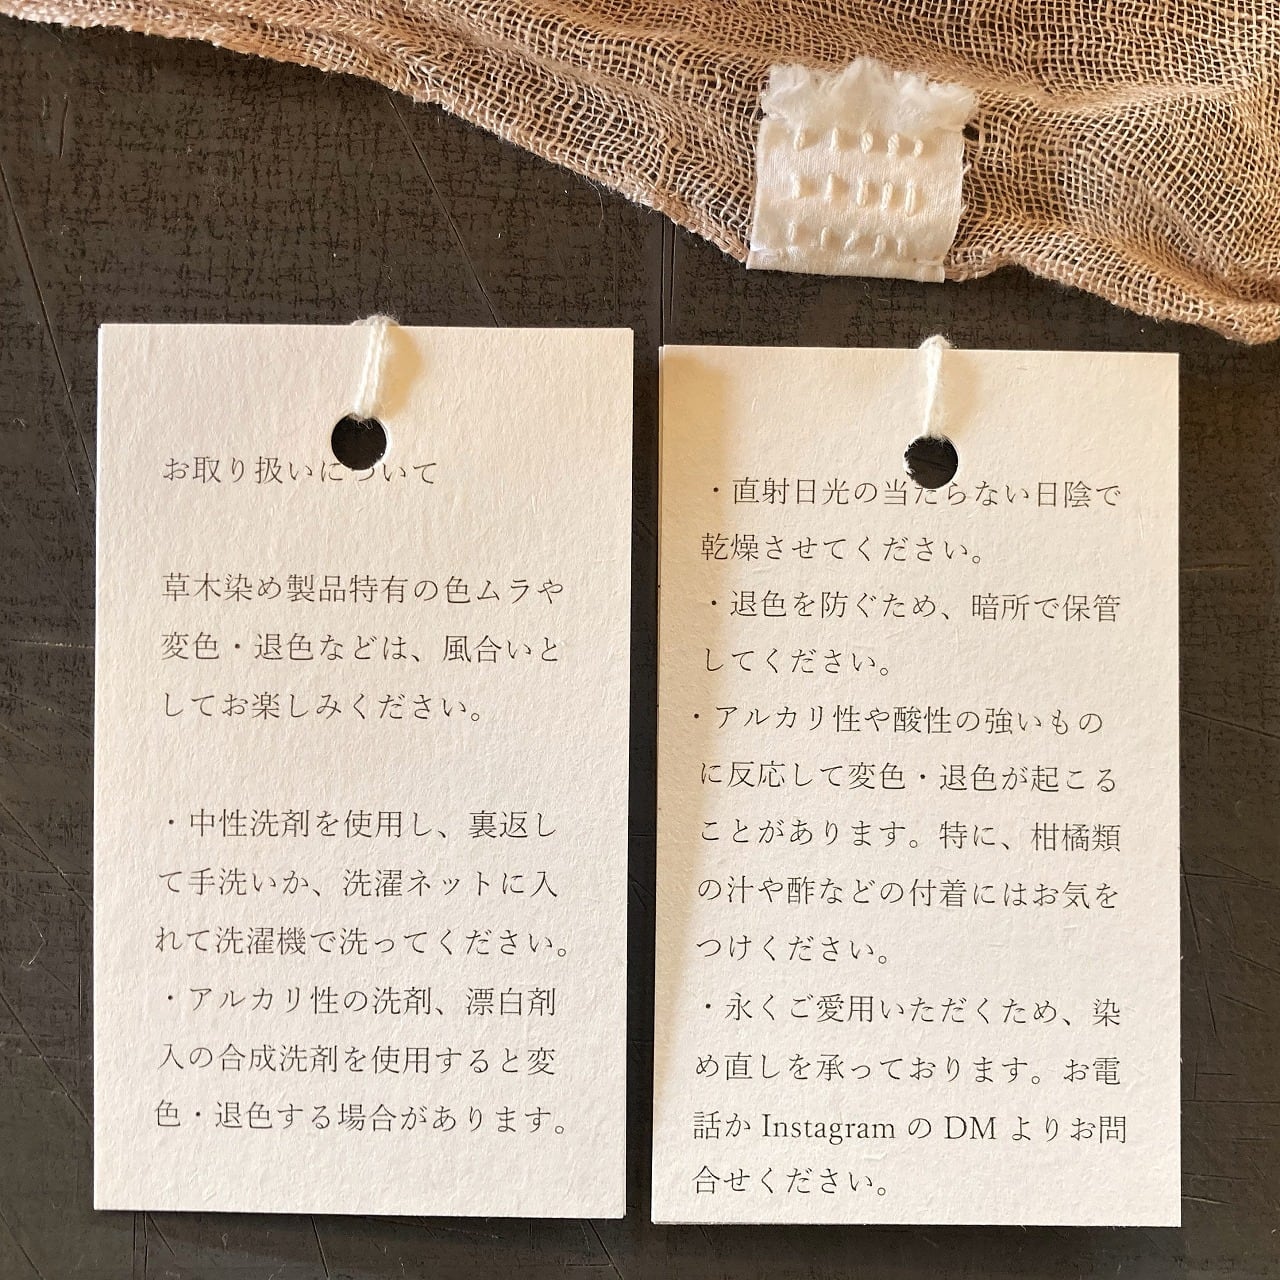 お取り扱いについて
草木染め製品特有の色ムラや
変色・退色などは、風合いと
してお楽しみください。
・中性洗剤を使用し、裏返し
て手洗いか、洗濯ネットに入
れて洗濯機で洗ってください。
・アルカリ性の洗剤、漂白剤
入の合成洗剤を使用すると変
色・退色する場合があります。
・直射日光の当たらない日陰で
乾燥させてください。
・退色を防ぐため、暗所で保管
してください。
・アルカリ性や酸性の強いもの
に反応して変色・退色が起こる
ことがあります。特に、柑橘類
の汁や酢などの付着にはお気を
つけください。
・永くご愛用いただくため、染
め直しを承っております。お電
話か Instagram の DM よりお問
合せください。